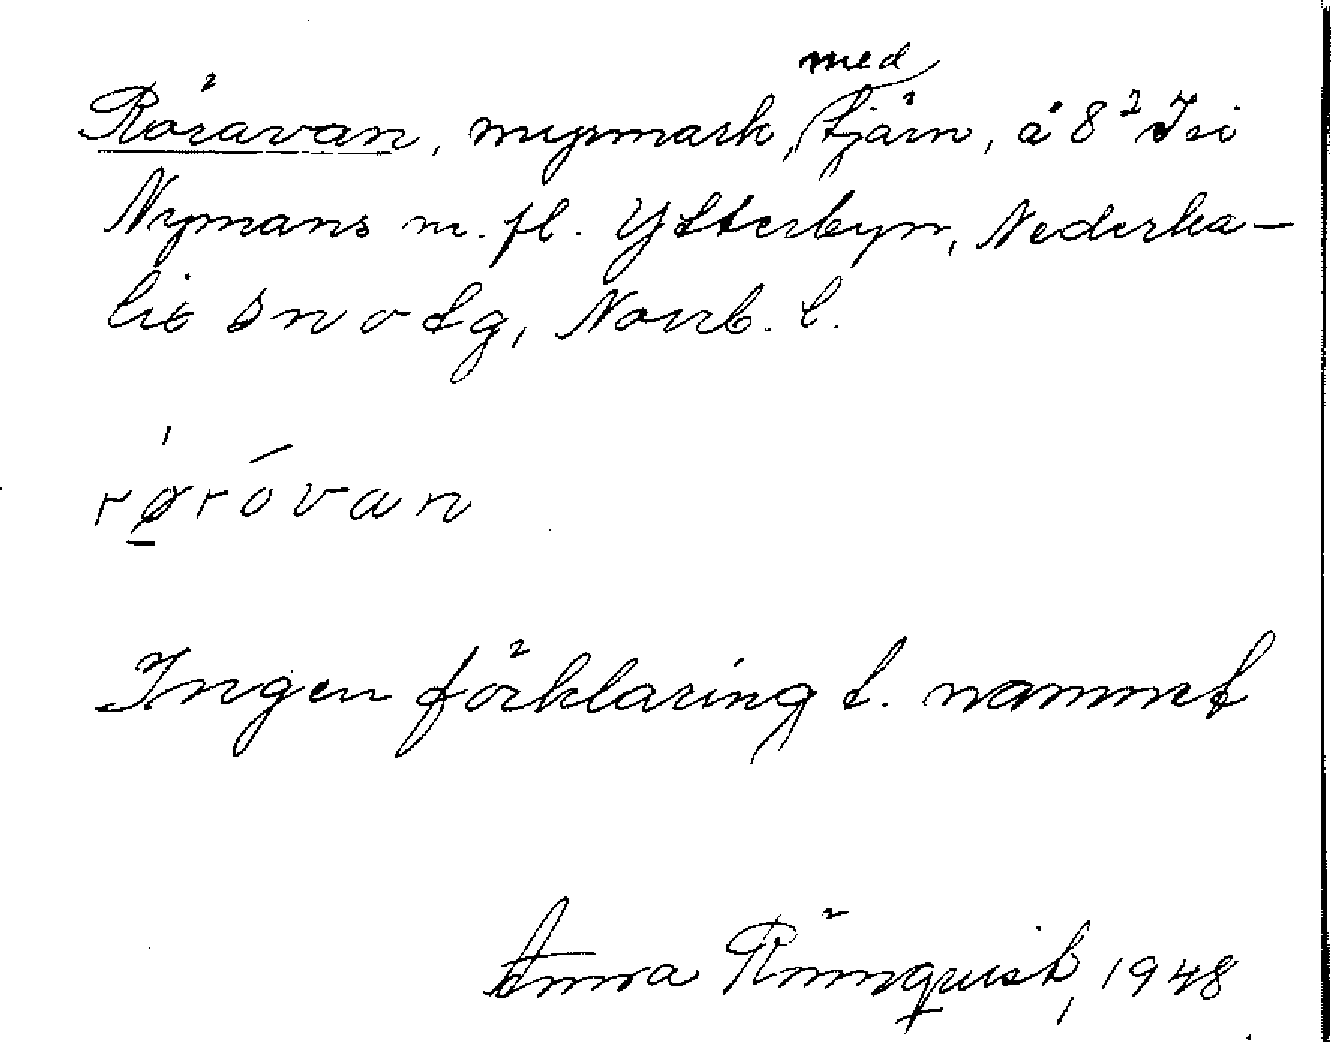 Röravan, myrmark, med tjärn, å 8² Isi
Nymans m. fl. Ytterbyn, Nederka-
lix sn o tg, Norrb. l.
røróvan
Ingen förklaring t. namnet
Anna Rönnquist, 1948